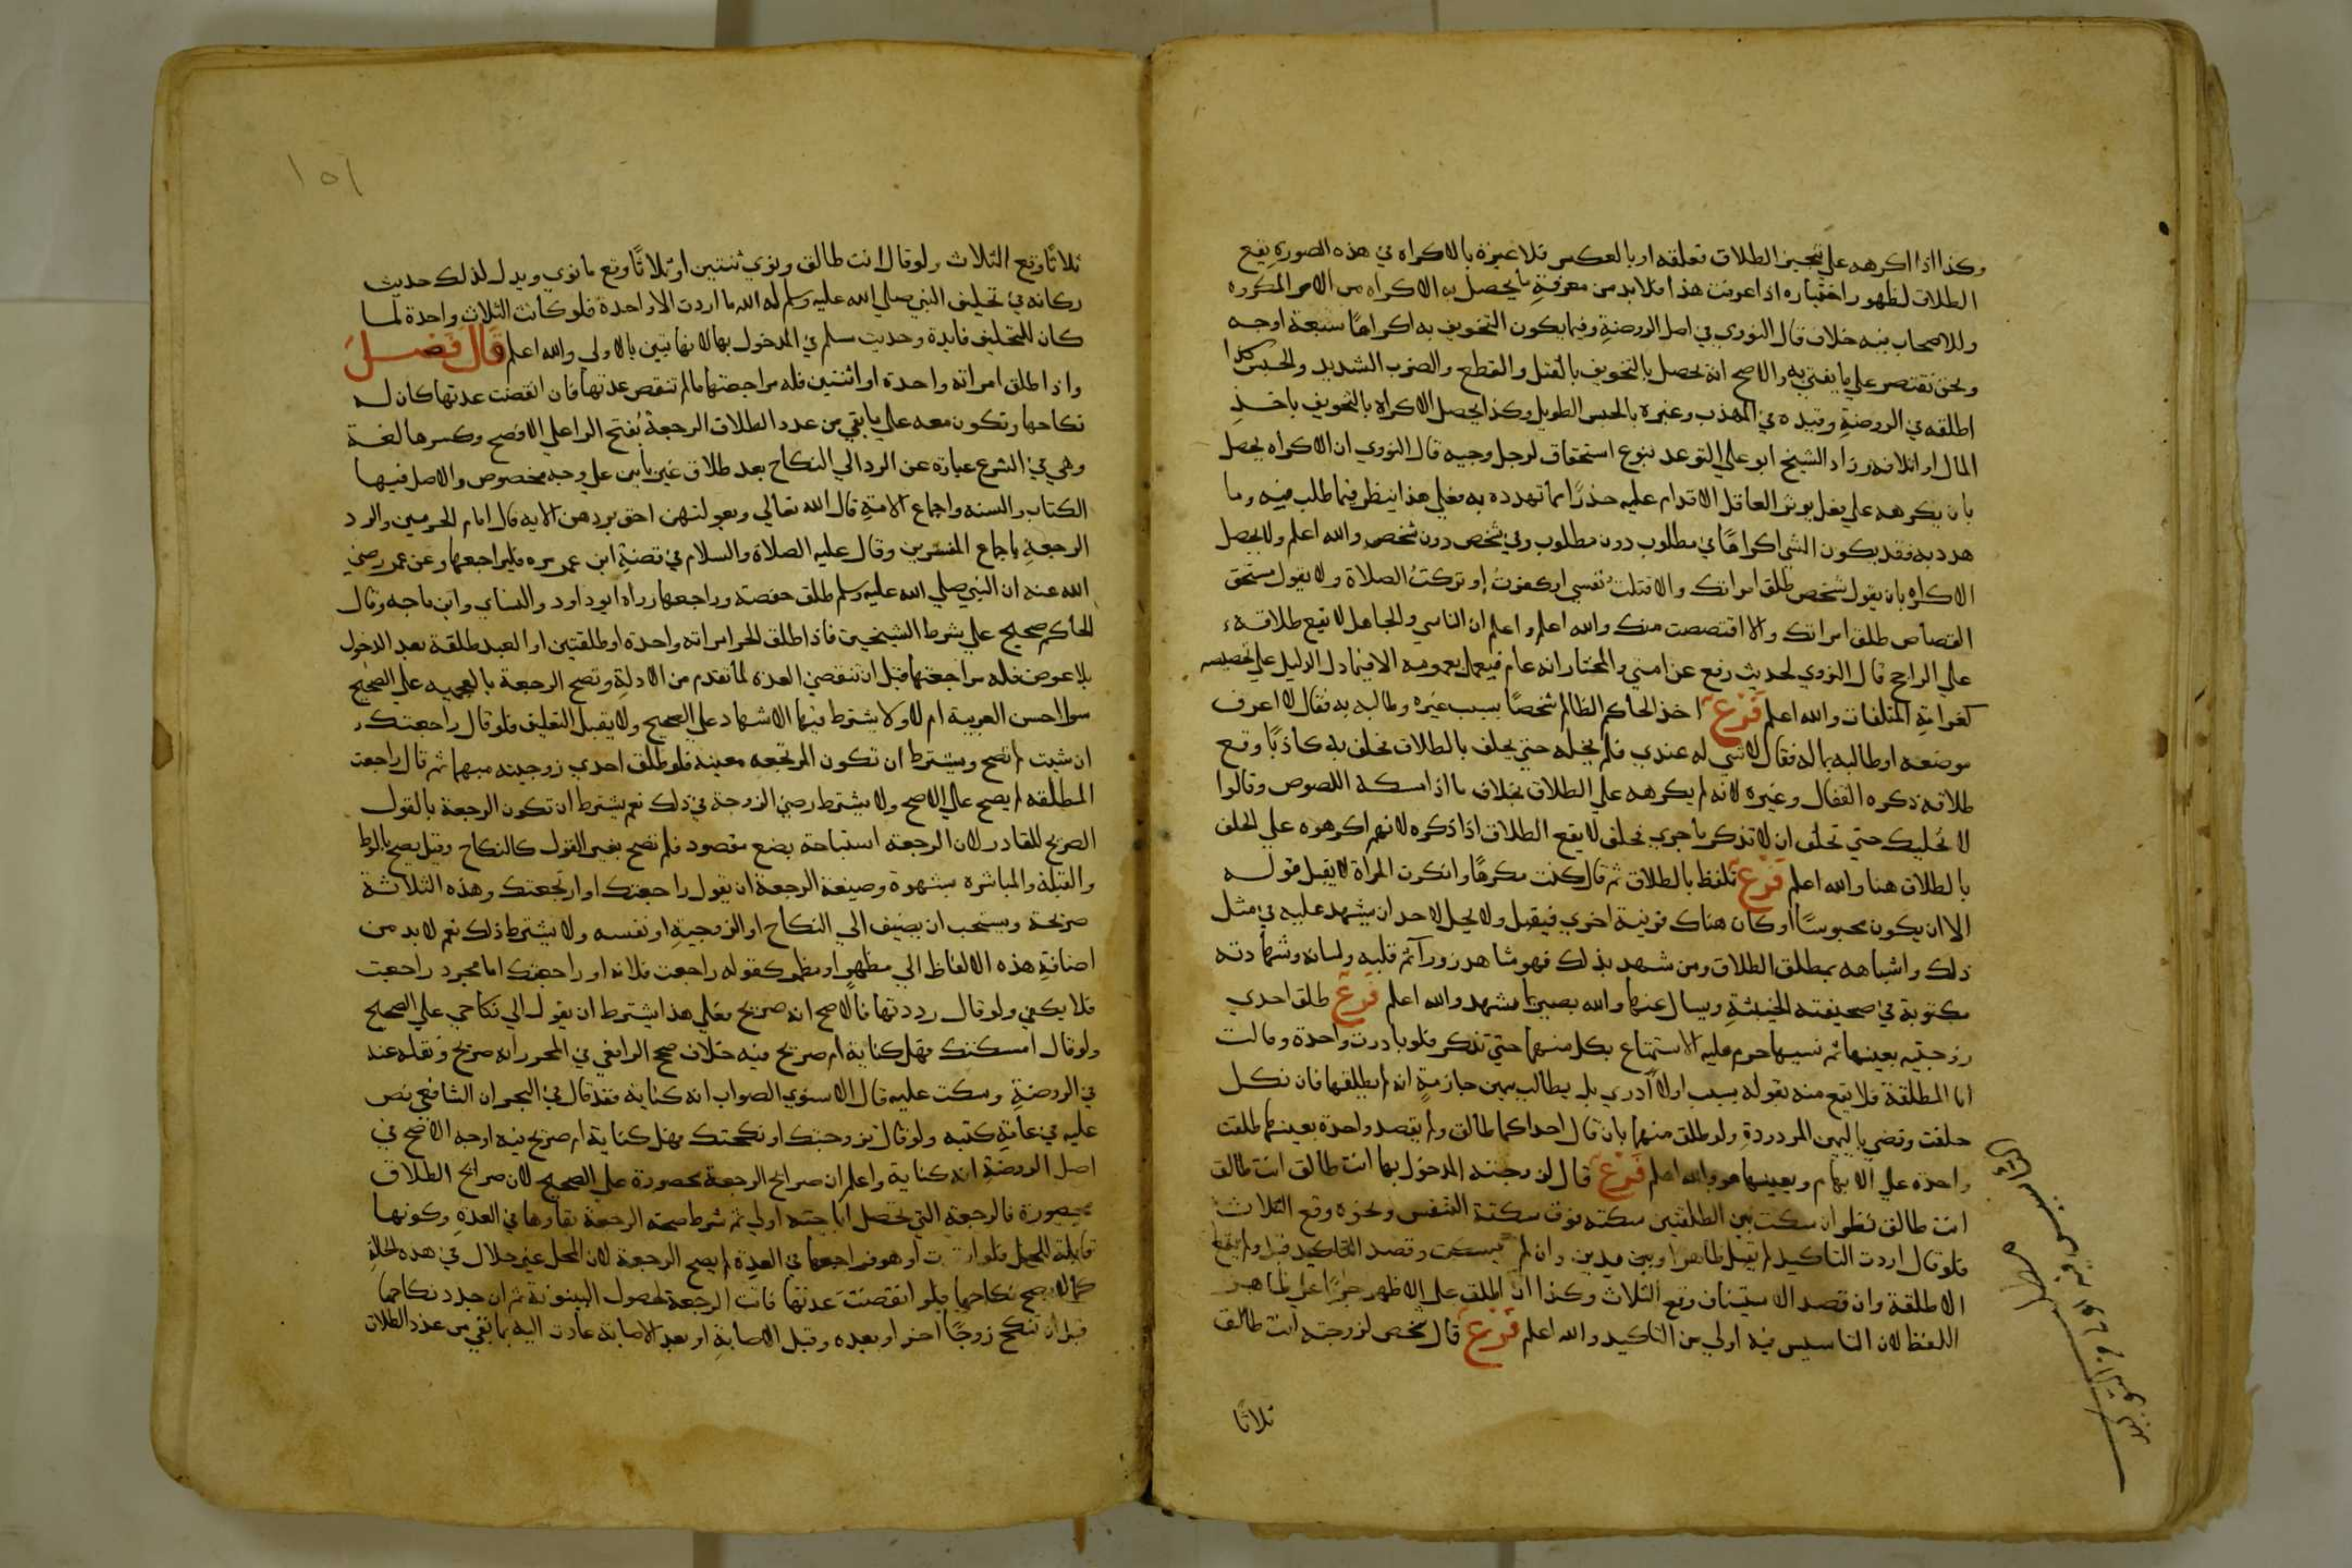 وكذا اذا اكرهه على تنجيز الطلاق فعلقه او بالعكس فلا عبرة بالاكراه في هذه الصورة يقع
الطلاق لظهور اختياره اذا عرفت هذا فلا بد من معرفة ما يحصل به الاكراه من الامر المكروه
وللاصحاب فيه خلاف قال النووي في اصل الروضة وفيما يكون التخويف به اكراها سبعة اوجه
ونحن نقتصر علي ما يفتي به والاصح انه يحصل بالتخويف بالقتل والقطع والضرب الشديد والحبس كذا
اطلقه في الروضة وقيده في المهذب وغيره بالحبس الطويل وكذا يحصل الاكراه بالتخويف باخذ
المال او اتلافه وزاد الشيخ ابو علي التوعد بنوع استخفاف لرجل وجيه قال النووي ان الاكراه يحصل
بان يكرهه علي فعل يوثر العاقل الاقدام عليه حذرًا مما تهدده به فعلي هذا ينظر فيما طلب منه وما
هدد به فقد يكون الشي اكراهًا في مطلوب دون مطلوب وفي شخص دون شخص والله اعلم ولا يحصل
الاكراه بان يقول شخص طلق امراتك والا قتلت نفسي او كفرت او تركت الصلاة ولا يقول مستحق
القصاص طلق امراتك والا اقتصصت منك والله اعلم واعلم ان الناسي والجاهل لا يقع طلاقه
علي الراجح قال النووي لحديث رفع عن امتي والمختار انه عام فيعمل بعمومه الا فيما دل الدليل علي تخصيصه
كغرامة المتلفات والله اعلم فرع اخذ الحاكم الظالم شخصًا بسبب غيره وطالبه به فقال لا اعرف
موضعه او طالبه بماله فقال لا شي له عندي فلم يخله حتي يحلف بالطلاق فحلف به كاذبًا وقع
طلاقه ذكره القفال وغيره لانه لم يكرهه علي الطلاق بخلاف ما اذا مسكه اللصوص وقالوا
لا نخليك حتي تحلف ان لا تذكر ما جري فحلف لا يقع الطلاق اذا ذكره لانهم اكرهوه علي الحلف
بالطلاق هنا والله اعلم فرع تلفظ بالطلاق ثم قال كنت مكرهًا وانكرت المراة لا يقبل قوله
الا ان يكون محبوسًا او كان هناك قرينة اخري فيقبل ولا يحل لاحد ان يشهد عليه في مثل
ذلك واشباهه بمطلق الطلاق ومن شهد بذلك فهو شاهد زور آثم قلبه ولسانه وشهادته
مكتوبة في صحيفته الخبيثة ويسال عنها والله بصير بما شهد والله اعلم فرع طلق احدي
زوجتيه بعينها ثم نسيها حرم عليه الاستمتاع بكل منهما حتي تذكر فلو بادرت واحدة وقالت
انا المطلقة فلا يقع منه بقوله نسيت او لا ادري بل يطالب بيمين جازمة انه لم يطلقها فان نكل
حلفت وقضي باليمين المردودة ولو طلق منهما بان قال احداكما طالق ولم يقصد واحدة بعينها طلقت
واحدة علي الابهام ويعينها هو والله اعلم فرع قال لزوجته المدخول بها انت طالق انت طالق
انت طالق نظر ان سكت بين الطلقتين سكتة فوق سكتة التنفس ونحوه وقع الثلاث
فلو قال اردت التاكيد لم يقبل ظاهرا ويدين وان لم يسكت وقصد التاكيد قبل ولم يقع
الا طلقة وان قصد الاستيناف وقع الثلاث وكذا ان اطلق علي الاظهر جريًا علي ظاهر
اللفظ لان التاسيس فيه اولي من التاكيد والله اعلم فرع قال شخص لزوجته انت طالق
ثلاثا
ثلاثًا وقع الثلاث ولو قال انت طالق ونوي ثنتين او ثلاثًا وقع ما نوي ويدل لذلك حديث
ركانه في تحليف النبي صلي الله عليه وسلم له الله ما اردت الا واحدة فلو كانت الثلاث واحدة لما
كان للتحليف فايدة وحديث مسلم في المدخول بها لانها تبين بالاولي والله اعلم قال فصل
واذا طلق امراته واحدة او اثنتين فله مراجعتها ما لم تنقض عدتها فان انقضت عدتها كان له
نكاحها وتكون معه علي ما بقي من عدد الطلاق الرجعة بفتح الرا علي الافصح وكسرها لغة
وهي في الشرع عبارة عن الرد الي النكاح بعد طلاق غير باين علي وجه مخصوص والاصل فيها
الكتاب والسنه واجماع الامة قال الله تعالي وبعولتهن احق بردهن الايه قال امام الحرمين والرد
الرجعة باجماع المفسرين وقال عليه الصلاة والسلام في قضية ابن عمر مره فليراجعها وعن عمر رضي
الله عنه ان النبي صلي الله عليه وسلم طلق حفصة وراجعها رواه ابو داود والنساي وابن ماجه وقال
الحاكم صحيح علي شرط الشيخين فاذا طلق الحر امراته واحدة او طلقتين او العبد طلقة بعد الدخول
بلا عوض فله مراجعتها قبل ان تنقضي العدة لما تقدم من الادلة وتصح الرجعة بالعجميه علي الصحيح
سوا احسن العربية ام لا ولا يشترط فيها الاشهاد علي الصحيح ولا يقبل التعليق فلو قال راجعتك
ان شيت لم تصح ويشترط ان تكون المرتجعه معينة فلو طلق احدي زوجتيه مبهما ثم قال راجعت
المطلقه لم يصح علي الاصح ولا يشترط رضي الزوجة في ذلك نعم يشترط ان تكون الرجعة بالقول
الصريح للقادر لان الرجعة استباحة بضع مقصود فلم تصح بغير القول كالنكاح وقيل يصح بالوط
والقبلة والمباشرة بشهوة وصيغة الرجعة ان يقول راجعتك او ارتجعتك وهذه الثلاثة
صريحة ويستحب ان يضيف الي النكاح او الزوجية او نفسه ولا يشترط ذلك نعم لا بد من
اضافة هذه الالفاظ الي مظهر او مضمر كقوله راجعت فلانة او راجعتك اما مجرد راجعت
فلا يكفي ولو قال رددتها فالاصح انه صريح فعلي هذا يشترط ان يقول الي نكاحي علي الصحيح
ولو قال امسكتك فهل كناية ام صريح فيه خلاف صحح الرافعي في المحرر انه صريح ونقله عنه
في الروضة وسكت عليه قال الاسنوي الصواب انه كناية فقد قال في البحر ان الشافعي نص
عليه في عامة كتبه ولو قال تزوجتك او نكحتك فهل كناية ام صريح فيه اوجه الاصح في
اصل الروضة انه كناية واعلم ان صرايح الرجعة محصورة علي الصحيح لان صرايح الطلاق
محصورة فالرجعة التي تحصل اباحته اولي ثم شرط صحة الرجعة بقاوها في العدة وكونها
قابلة للحل فلو ارتدت او هو فراجعها في العدة لم يصح الرجعة لان المحل غير حلال في هذه الحالة
كما لا يصح نكاحها فلو انقضت عدتها فاتت الرجعة لحصول البينونة ثم ان جدد نكاحها
قبل ان تنكح زوجًا اخر او بعده وقبل الاصابة او بعد الاصابة عادت اليه بما بقي من عدد الطلاق